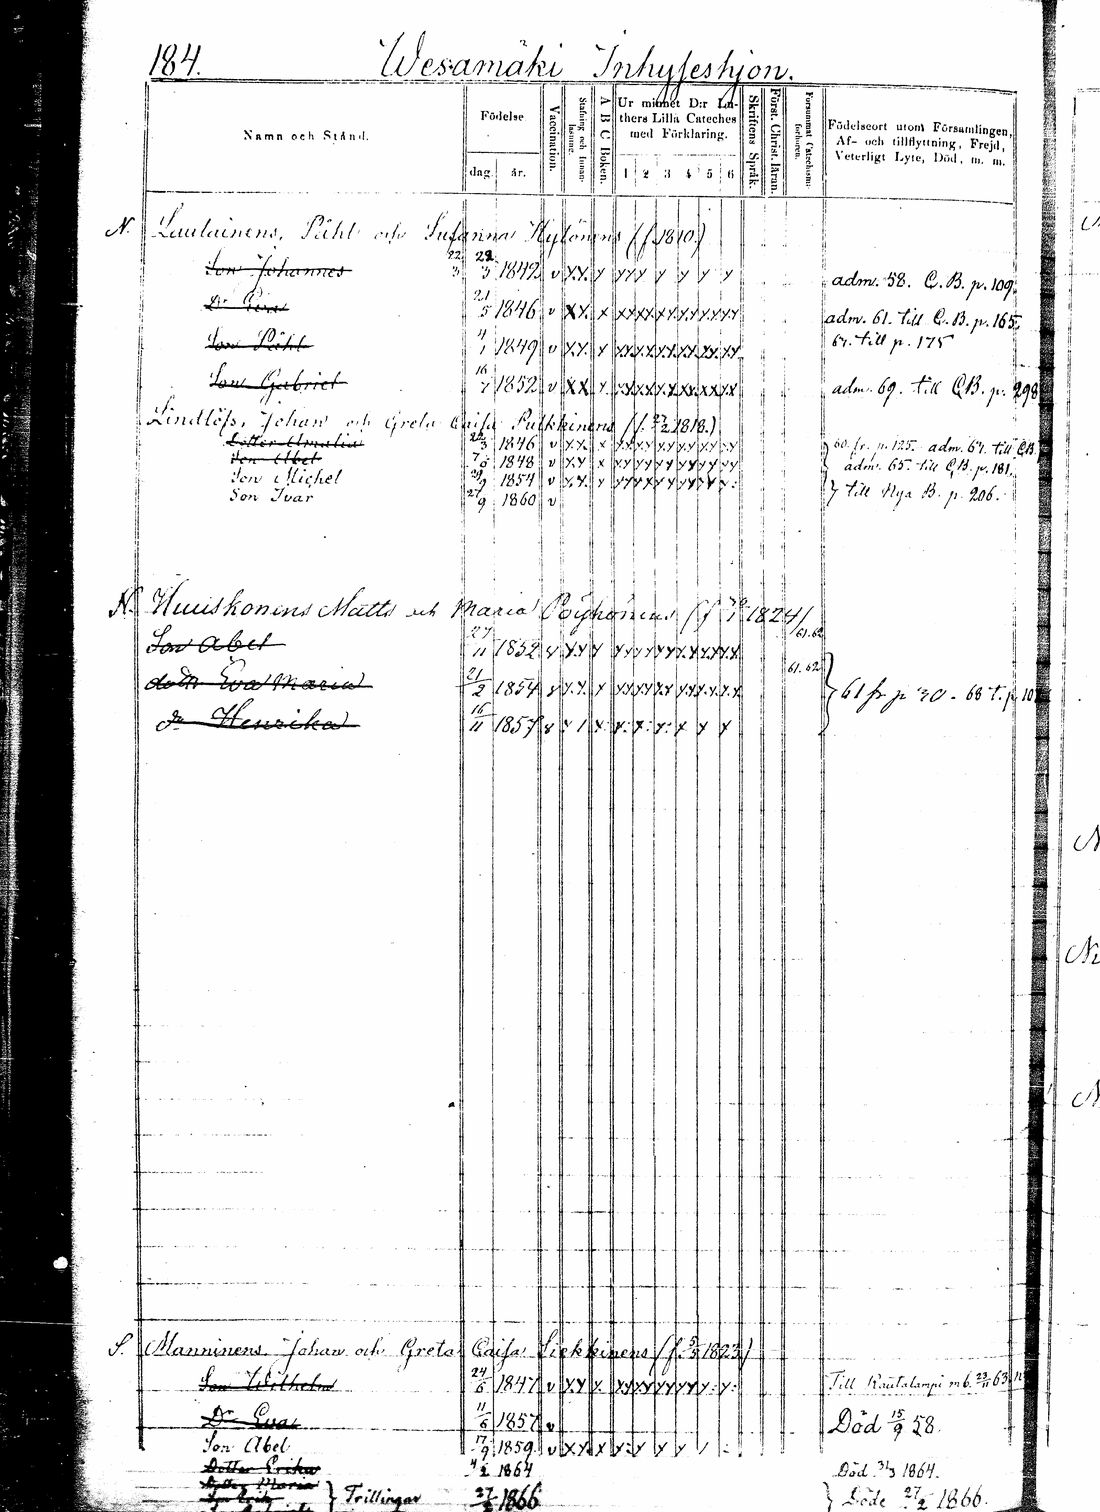 184. Wesamäki Inhyseshjon.
Namn och Stånd.
Födelse
dag. år.
Vaccination.
Stafning och Innan-läsning.
A B C Boken.
Ur minnet D:r Lu-
thers Lilla Cateches
med Förklaring.
1 2 3 4 5 6
Skriftens Språk.
Först. Christ. läran.
Försummat Catechismi-förhören.
Födelseort utom Församlingen,
Af- och tillflyttning, Frejd,
Veterligt Lyte, Död, m. m.
N. Lautainens, Påhl och Susanna Hytönens (f. 1810.)
Son Johannes 22/3 1842 v adm. 58. C.B. p. 109.
Dr 21/5 1846 v adm. 61. till C.B. p. 165.
Son Påhl 4/1 1849 v 67. till p. 175
Son Gabriel 16/7 1852 v adm. 69. till CB. p. 298
Lindlöfs, Johan och Greta Caisa Pulkkinens (f. 27/2 1818.)
Dotter Amalia 1846 v 60. fr. p. 125. adm. 67. till CB.
Son Abel 1848 v adm. 65. till CB. p. 181.
Son Michel 1854 v
Son Ivar 27/9 1860 v till Nya B. p. 206.
N. Huuiskonens Matts och Maria Pöyhönens (f 1824) 61.62
Son Abel 27/11 1852 v
dottr Eva Maria 21/2 1854 v 61.62 61 fr p 30 - 68 t. p 10
dr Henrika 16/11 1857 v
S. Manninens Johan och Greta Caisa Liekkinens (f. 5/5 1823)
Son Wilhelm 24/6 1847 v Till Rautalampi m. b. 23/11 63.
Dr Eva 11/6 1857 v Död 15/9 58.
Son Abel 17/9 1859 v
Dotter Erika 4/2 1864 Död 31/3 1864.
Dotter Maria
Trillingar 27/2 1866 Döde 27/2 1866.